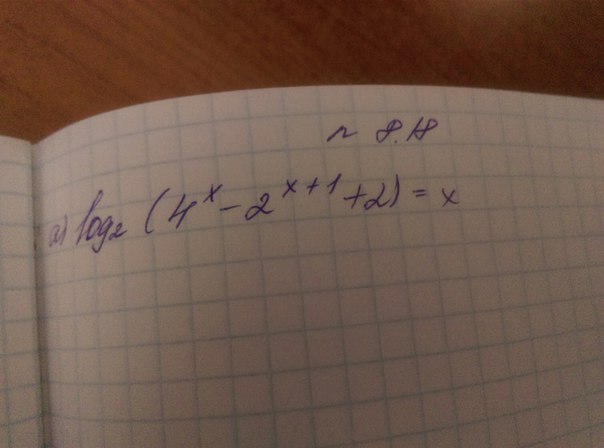 n 8.18
a) log₂ (4ˣ - 2ˣ⁺¹ + 2) = x